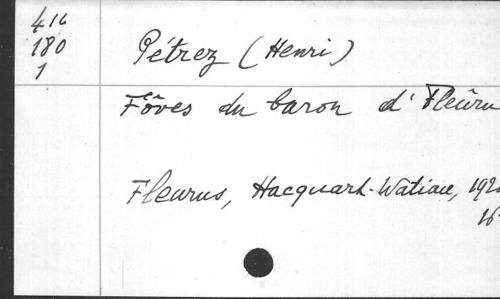 416
180
1
Pétrez (Henri)
Fôves du baron d'Fleûru
Fleurus, Hacquart-Watiau, 192
16